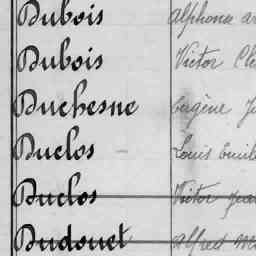 Dubois Alphonse
Dubois Victor
Duchesne Eugène
Duclos Louis
Duclos Victor
Dudouet Alfred